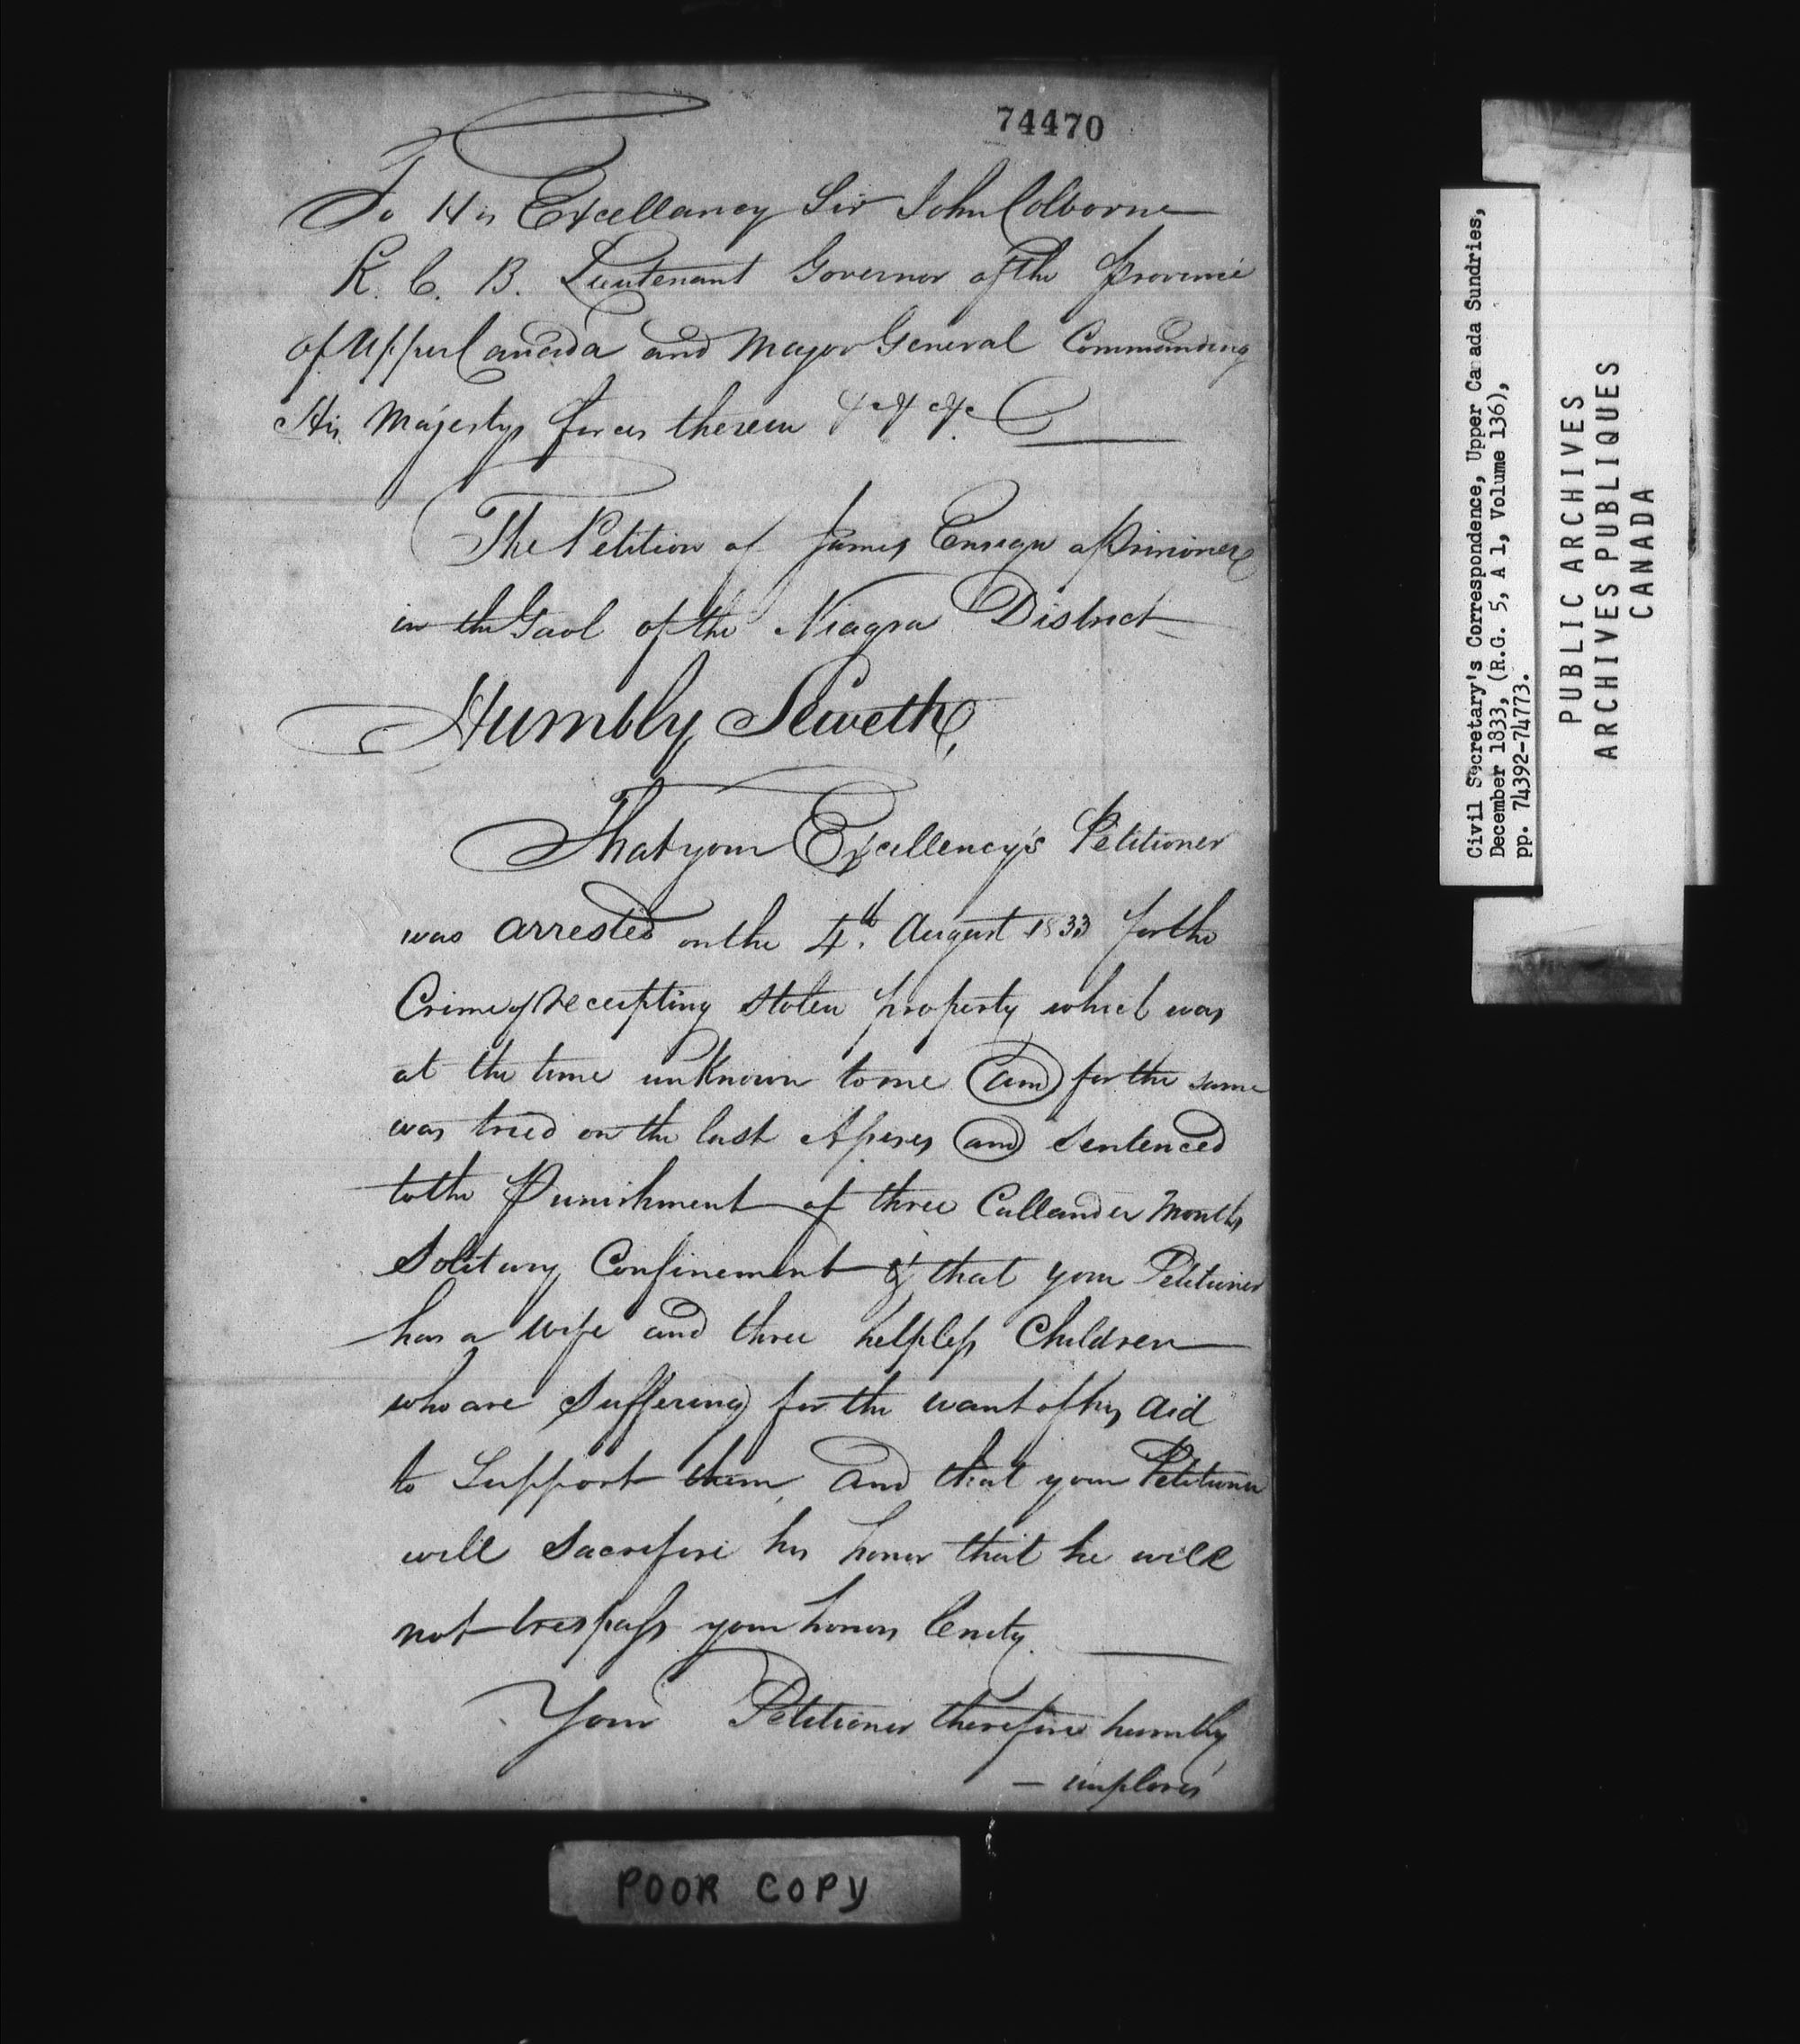 74470
To His Excellancy Sir John Colborne
K. C. B. Lieutenant Governor of the Province
of Upper Canada and Major General Commanding
His Majestys forces therein &c &c &c
The Petition of James Ensign a Prisoner
in the Gaol of the Niagra District
Humbly Sheweth,
That your Excellency's Petitioner
was arrested on the 4th August 1833 for the
Crime of receipting stolen property which was
at the time unknown to me and for the same
was tried on the last Assises and sentenced
to the Punishment of three Callander Months
Solitary Confinement & that your Petitioner
has a wife and three helpless Children
who are suffering for the want of his aid
to support them, and that your Petitioner
will sacrifise his honor that he will
not trespass your honors lenity.
Your Petitioner therefore humbly
– implores
POOR COPY
Civil Secretary's Correspondence, Upper Canada Sundries,
December 1833, (R.G. 5, A 1, Volume 136),
pp. 74392-74773.
PUBLIC ARCHIVES
ARCHIVES PUBLIQUES
CANADA